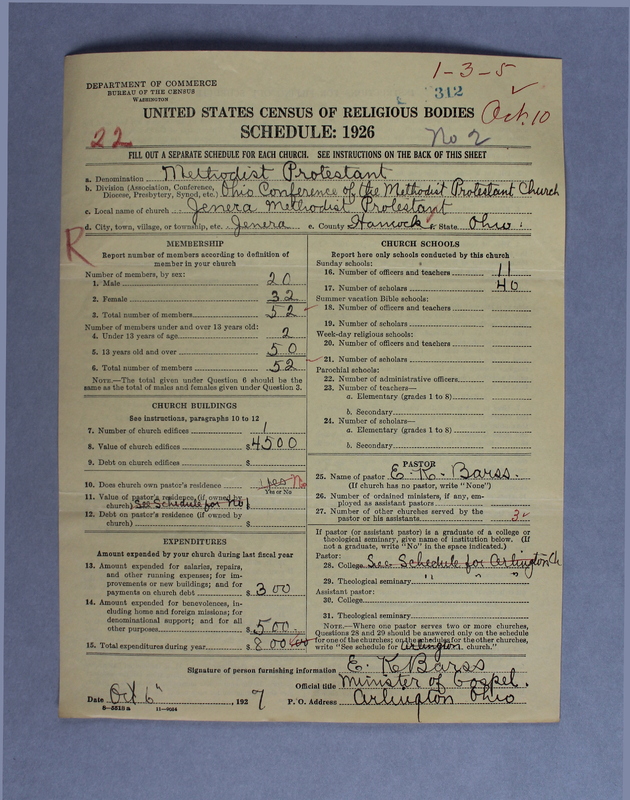 1-3-5
DEPARTMENT OF COMMERCE
BUREAU OF THE CENSUS
WASHINGTON
312
Oct. 10
UNITED STATES CENSUS OF RELIGIOUS BODIES
SCHEDULE: 1926
22
No 2
FILL OUT A SEPARATE SCHEDULE FOR EACH CHURCH. SEE INSTRUCTIONS ON THE BACK OF THIS SHEET
a. Denomination Methodist Protestant
b. Division (Association, Conference, Diocese, Presbytery, Synod, etc.) Ohio Conference of the Methodist Protestant Church
c. Local name of church Jenera Methodist Protestant
d. City, town, village, or township, etc. Jenera e. County Hancock f. State Ohio
R
MEMBERSHIP
Report number of members according to definition of
member in your church
Number of members, by sex:
1. Male 20
2. Female 32
3. Total number of members 52
Number of members under and over 13 years old:
4. Under 13 years of age 2
5. 13 years old and over 50
6. Total number of members 52
NOTE.—The total given under Question 6 should be the
same as the total of males and females given under Question 3.
CHURCH BUILDINGS
See instructions, paragraphs 10 to 12
7. Number of church edifices 1
8. Value of church edifices $4500
9. Debt on church edifices $
10. Does church own pastor's residence yes No
Yes or No
11. Value of pastor's residence (if owned by
church) See Schedule for No 1
12. Debt on pastor's residence (if owned by
church) $
EXPENDITURES
Amount expended by your church during last fiscal year
13. Amount expended for salaries, repairs,
and other running expenses; for im-
provements or new buildings; and for
payments on church debt $300
14. Amount expended for benevolences, in-
cluding home and foreign missions; for
denominational support; and for all
other purposes $500
15. Total expenditures during year $800
CHURCH SCHOOLS
Report here only schools conducted by this church
Sunday schools:
16. Number of officers and teachers 11
17. Number of scholars 40
Summer vacation Bible schools:
18. Number of officers and teachers
19. Number of scholars
Week-day religious schools:
20. Number of officers and teachers
21. Number of scholars
Parochial schools:
22. Number of administrative officers
23. Number of teachers—
a. Elementary (grades 1 to 8)
b. Secondary
24. Number of scholars—
a. Elementary (grades 1 to 8)
b. Secondary
PASTOR
25. Name of pastor E. K. Barss.
(If church has no pastor, write "None")
26. Number of ordained ministers, if any, em-
ployed as assistant pastors
27. Number of other churches served by the
pastor or his assistants 3
If pastor (or assistant pastor) is a graduate of a college or
theological seminary, give name of institution below. (If
not a graduate, write "No" in the space indicated.)
Pastor:
28. College See Schedule for Arlington Ch
29. Theological seminary " " "
Assistant pastor:
30. College
31. Theological seminary
NOTE.—Where one pastor serves two or more churches,
Questions 28 and 29 should be answered only on the schedule
for one of the churches; on the schedules for the other churches,
write "See schedule for Arlington church."
Signature of person furnishing information E. K Barss
Official title Minister of Gospel.
Date Oct 6", 1927 P. O. Address Arlington Ohio
8—5513 a 11—9024